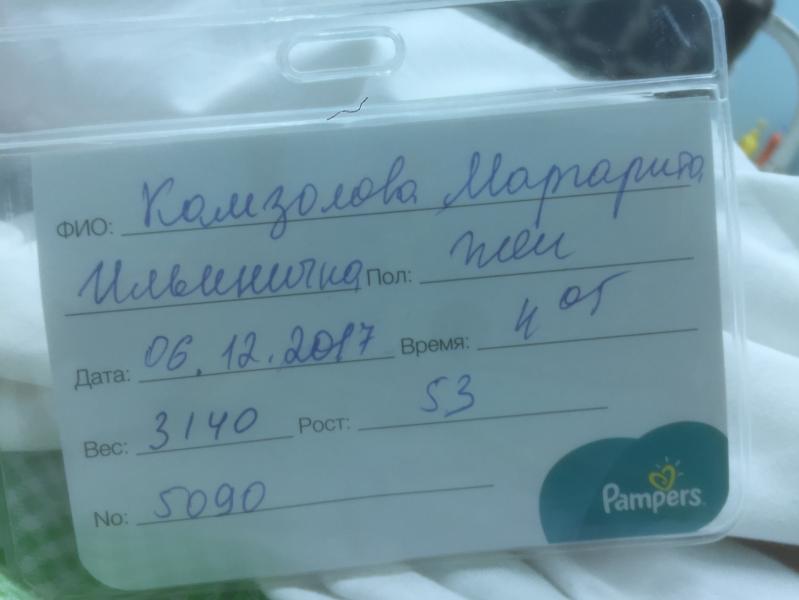 ФИО: Камзолова Маргарита
Ильинична Пол: жен
Дата: 06.12.2017 Время: 4 05
Вес: 3140 Рост: 53
No: 5090
Pampers